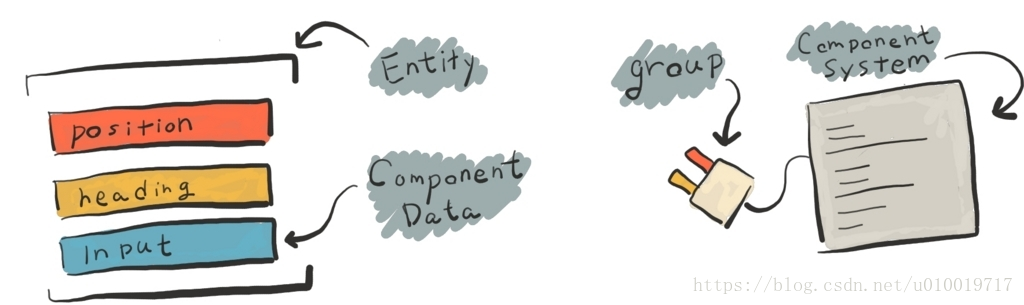 Entity
position
heading
Input
Component
Data
group
Component
System
https://blog.csdn.net/u010019717